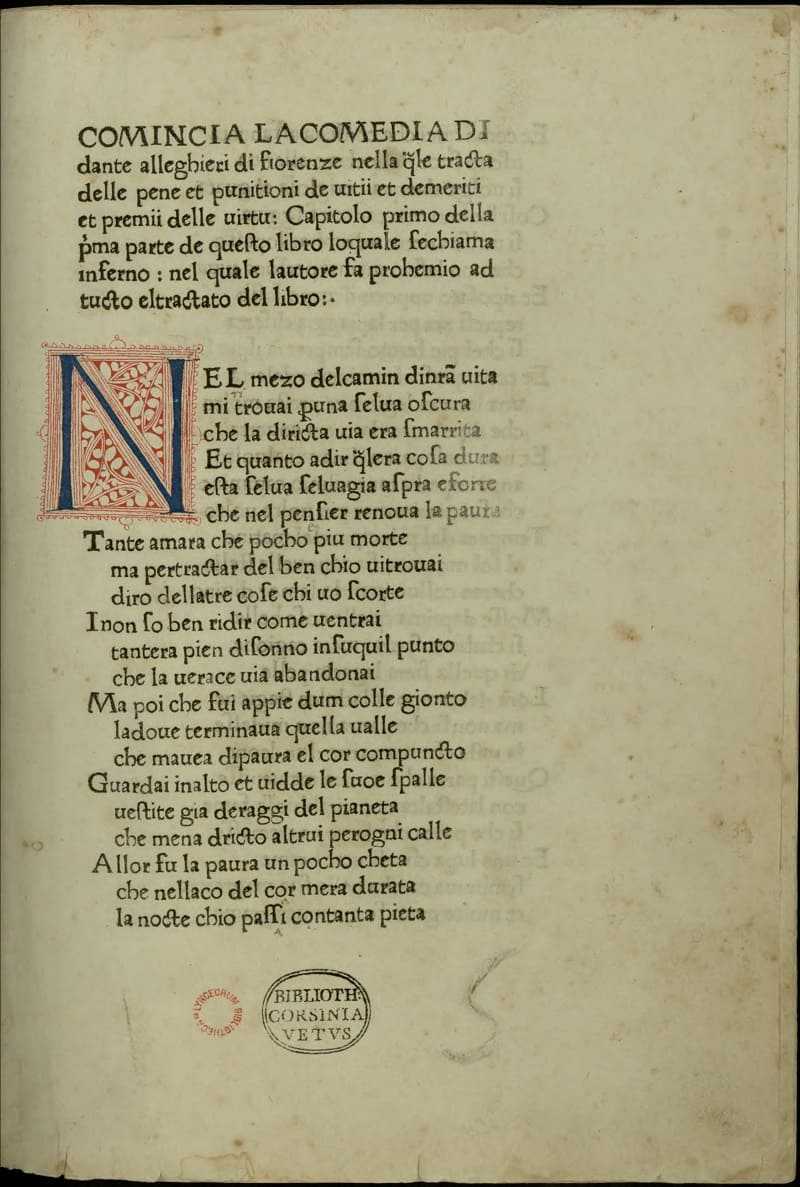 COMINCIA LACOMEDIA DI
dante alleghieri di fiorenze nella q̃le tracta
delle pene et punitioni de uitii et demeriti
et premii delle uirtu: Capitolo primo della
p̃ma parte de queſto libro loquale ſechiama
inferno : nel quale lautore fa probemio ad
tucto eltractato del libro:·
NEL mezo delcamin dinrã uita
mi trouai ꝓuna ſelua oſcura
che la diricta uia era ſmarrita
Et quanto adir q̃lera coſa dura
eſta ſelua ſeluagia aſpra eforte
che nel penſier renoua la paura
Tante amara che pocho piu morte
ma pertractar del ben chio uitrouai
diro dellatre coſe chi uo ſcorte
I non ſo ben ridir come uentrai
tantera pien diſonno inſuquil punto
che la uerace uia abandonai
Ma poi che fui appie dum colle gionto
ladoue terminaua quella ualle
che mauea dipaura el cor compuncto
Guardai inalto et uidde le ſuoe ſpalle
ueſtite gia deraggi del pianeta
che mena dricto altrui perogni calle
Allor fu la paura un pocho cheta
che nellaco del cor mera durata
la nocte chio paſſi contanta pieta
LYNCEORUM BIBLIOTHECA
BIBLIOTH.
CORSINIA
VETVS